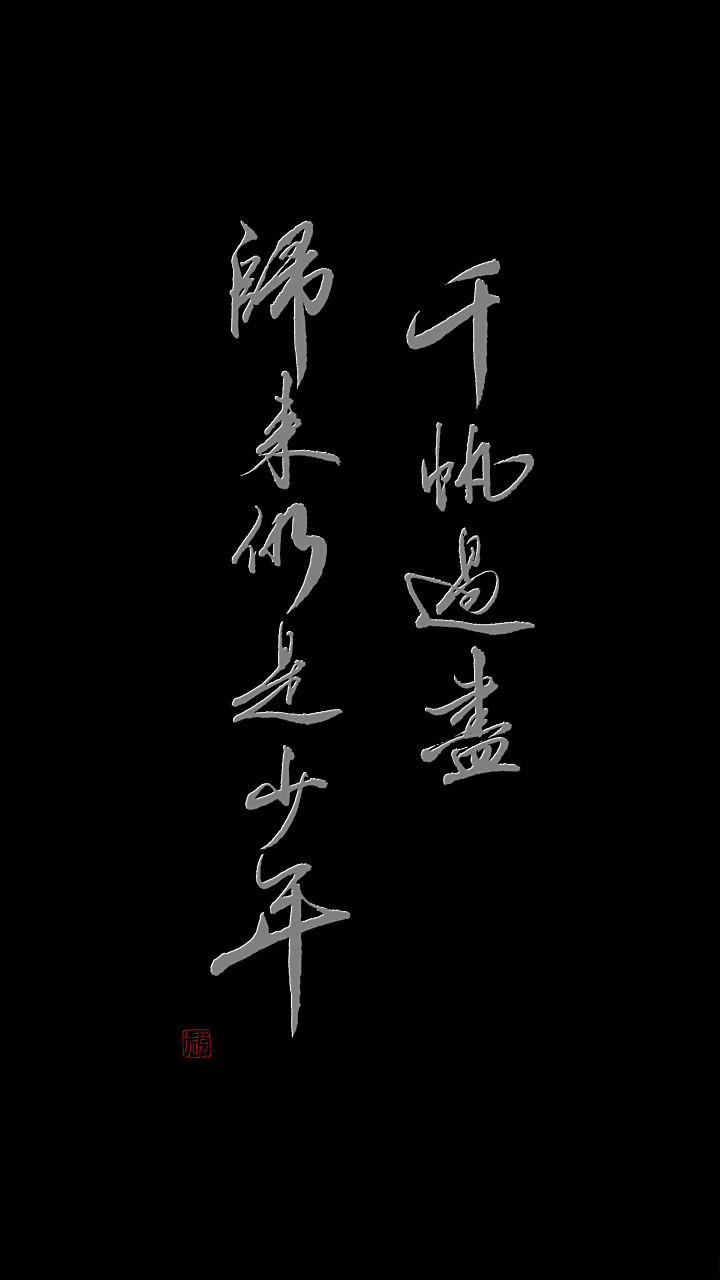 千帆過盡
歸来仍是少年